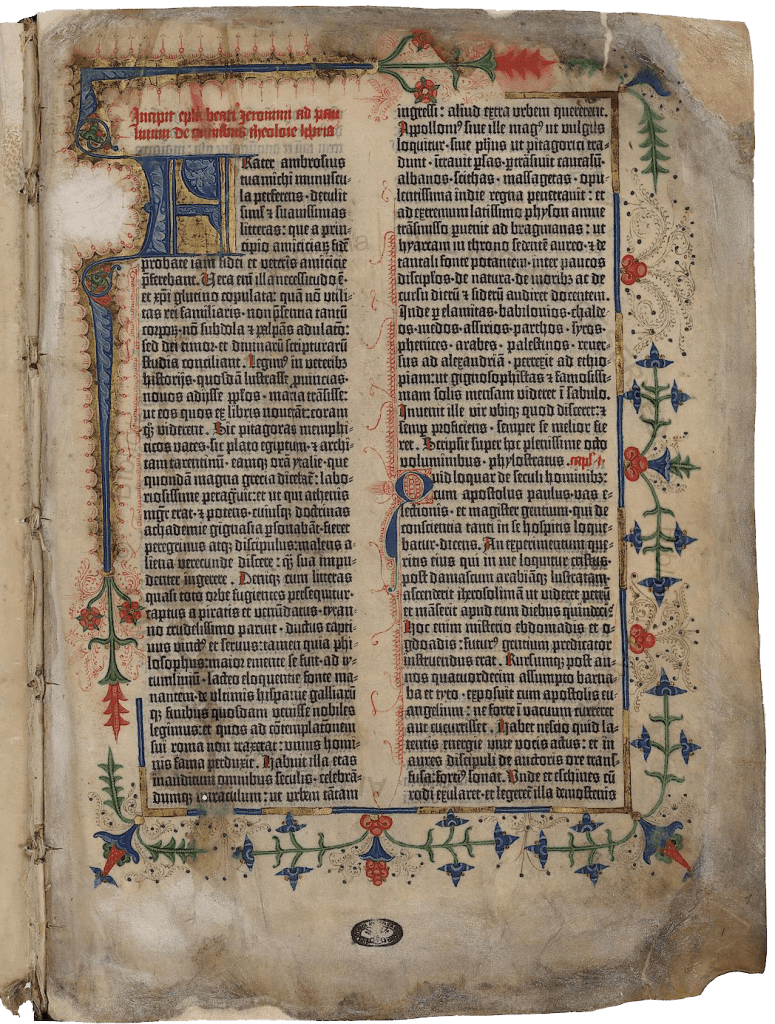 Incipit epla beati Jeronimi ad pau
linum de omnibus diuine historie libris
FRater ambrosius
tua michi munuscu-
la perferens·detulit
simul ⁊ suauissimas
litteras: que a prin-
cipio amiciciaꝝ fidē
probate iam fidei et veteris amicicie
p̄ferebant. Uera eni̅ illa necessitudo ē·
et xp̄i glutino copulata: quam nō utili-
tas rei familiaris·non p̄sentia tantū
corporꝝ·nō subdola ⁊ palpās adulacō:
sed dei timor·et diuinarū scripturarū
studia conciliant. Legimꝰ in veteribꝫ
historijs·quosdā lustrasse ꝓuincias·
nouos adijsse pplos·maria transisse:
ut eos quos ex libris nouerāt: coram
qꝫ viderent. Sic pitagoras memphi-
ticos vates·sic plato egiptum·⁊ archi-
tam tarentinū·eamqꝫ orā ytalie·que
quondā magna grecia diceba͞t: labo-
riosissime peragͥuit: et ut qui athenis
mgͬ erat·⁊ potens·cuiusqꝫ doctrinas
achademie gignasia ꝑsonabāt·fieret
peregrinus atqꝫ discipulus: malens a-
liena verecunde discere: qͣꝫ sua impu-
denter ingerere. Deniqꝫ cum litteras
quasi toto orbe fugientes persequitur·
captus a piratis et venūdatus·tyran-
no crudelissimo paruit·ductus capti-
uus vinctꝰ et seruus: tamen quia phi-
losophus: maior emente se fuit·ad ty-
tumliniū·lacteo eloquentie fonte ma-
nantem·de vltimis hispanie galliarū
qꝫ finibus quosdam venisse nobiles
legimus: et quos ad cōtemplacōnem
sui roma non traxerat: unius homi-
nis fama perduxit. Habuit illa etas
inauditum omnibus seculis·celebrā-
dumqꝫ miraculum: ut urbem tātam
ingressi: aliud extra urbem quererent.
Apolloniꝰ siue ille magꝰ ut vulgus
loquitur·siue ph̄us ut pitagorici tra-
dunt·itrauit ꝑsas·ꝑtrāsiuit caucasū·
albanos·scithas·massagetas·opu-
lentissima indie regna penetrauit: et
ad extremum latissimo physon amne
trāsmisso ꝑuenit ad bragmanas: ut
hyarcam in throno sedentē aureo·⁊ de
tantali fonte potantem·inter paucos
discip̄los·de natura·de moribꝫ ac de
cursu dierū ⁊ siderū audiret docentem.
Inde ꝑ elamitas·babilonios·chalde-
os·medos·assirios·parthos·syros·
phenices·arabes·palestinos·reuer-
sus ad alexandriā·perrexit ad ethio-
piam: ut gignosophistas ⁊ famosissi-
mam solis mensam videret ī sabulo.
Inuenit ille vir vbiqꝫ quod disceret: ⁊
semꝑ proficiens·semper se melior fie-
ret. Scripsit super hoc plenissime octo
voluminibus·phylostratus. caplᷣ·I·
Quid loquar de seculi hominibꝫ:
cum apostolus paulus·vas e-
lectionis·et magister gentium·qui de
conscientia tanti in se hospitis loque-
batur·dicens. An experimentum que-
ritis eius qui in me loquitur cristus·
post damascum arabiāqꝫ lustratam·
ascenderit iherosolimā ut videret petrū
et māserit apud eum diebus quindeci·
Hoc enim misterio ebdomadis et o-
gdoadis: futurꝰ gentium predicator
instruendus erat. Rursumqꝫ post an-
nos quatuordecim assumpto barna-
ba et tyto·exposuit cum apostolis eu-
angelium: ne forte ī vacuum curreret
aut cucurrisset. Habet nescio quid la-
tentis energie viue vocis actus: et in
aures discipuli de auctoris ore trans-
fusa: fortiꝰ sonat. Unde et eschines cū
rodi exularet·et legeret̄ illa demostenis